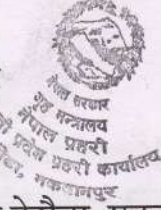 नेपाल सरकार
गृह मन्त्रालय
नेपाल प्रहरी
प्रदेश प्रहरी कार्यालय
मकवानपुर